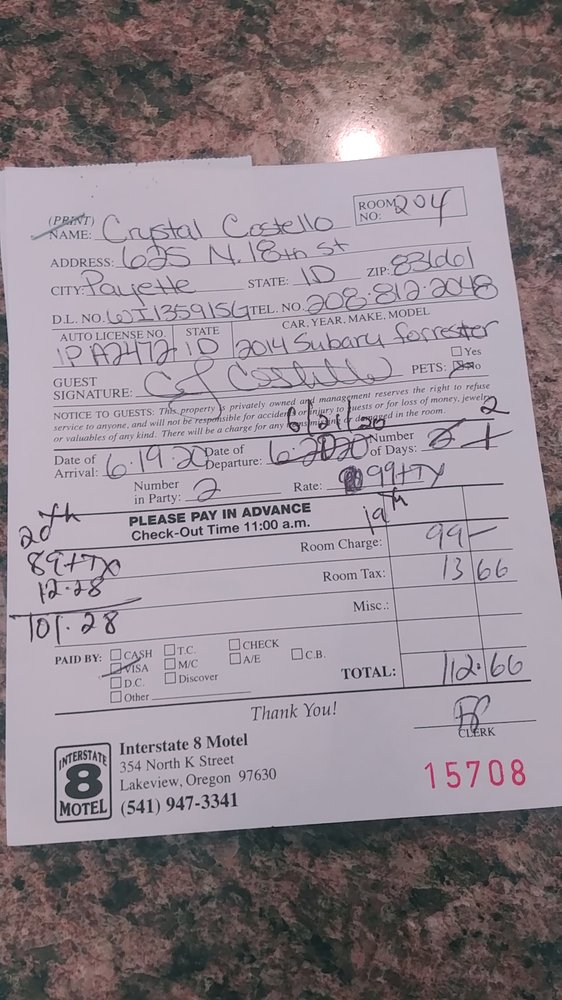 (PRINT)
NAME: Crystal Costello
ROOM NO: 204
ADDRESS: 625 N. 18th St
CITY: Payette STATE: ID ZIP: 83661
D.L. NO. WI135915G TEL. NO. 208.812.2048
AUTO LICENSE NO. STATE CAR, YEAR, MAKE, MODEL
1PA2472 ID 2014 Subaru forrester
GUEST SIGNATURE: PETS: Yes No
NOTICE TO GUESTS: This property is privately owned and management reserves the right to refuse
service to anyone, and will not be responsible for accident or injury to guests or for loss of money, jewelry
or valuables of any kind. There will be a charge for any items missing or damaged in the room.
6/21/20 2
Date of Arrival: 6.19.20 Date of Departure: 6.20.20 Number of Days: 2 1
Number in Party: 2 Rate: 99+TX
PLEASE PAY IN ADVANCE
Check-Out Time 11:00 a.m.
19th
Room Charge: 99-
Room Tax: 13 66
Misc.:
20th
89+TX
12.28
101.28
PAID BY: CASH T.C. CHECK
VISA M/C A/E C.B.
D.C. Discover
Other
TOTAL: 112.66
Thank You!
CLERK
INTERSTATE 8 MOTEL
Interstate 8 Motel
354 North K Street
Lakeview, Oregon 97630
(541) 947-3341
15708